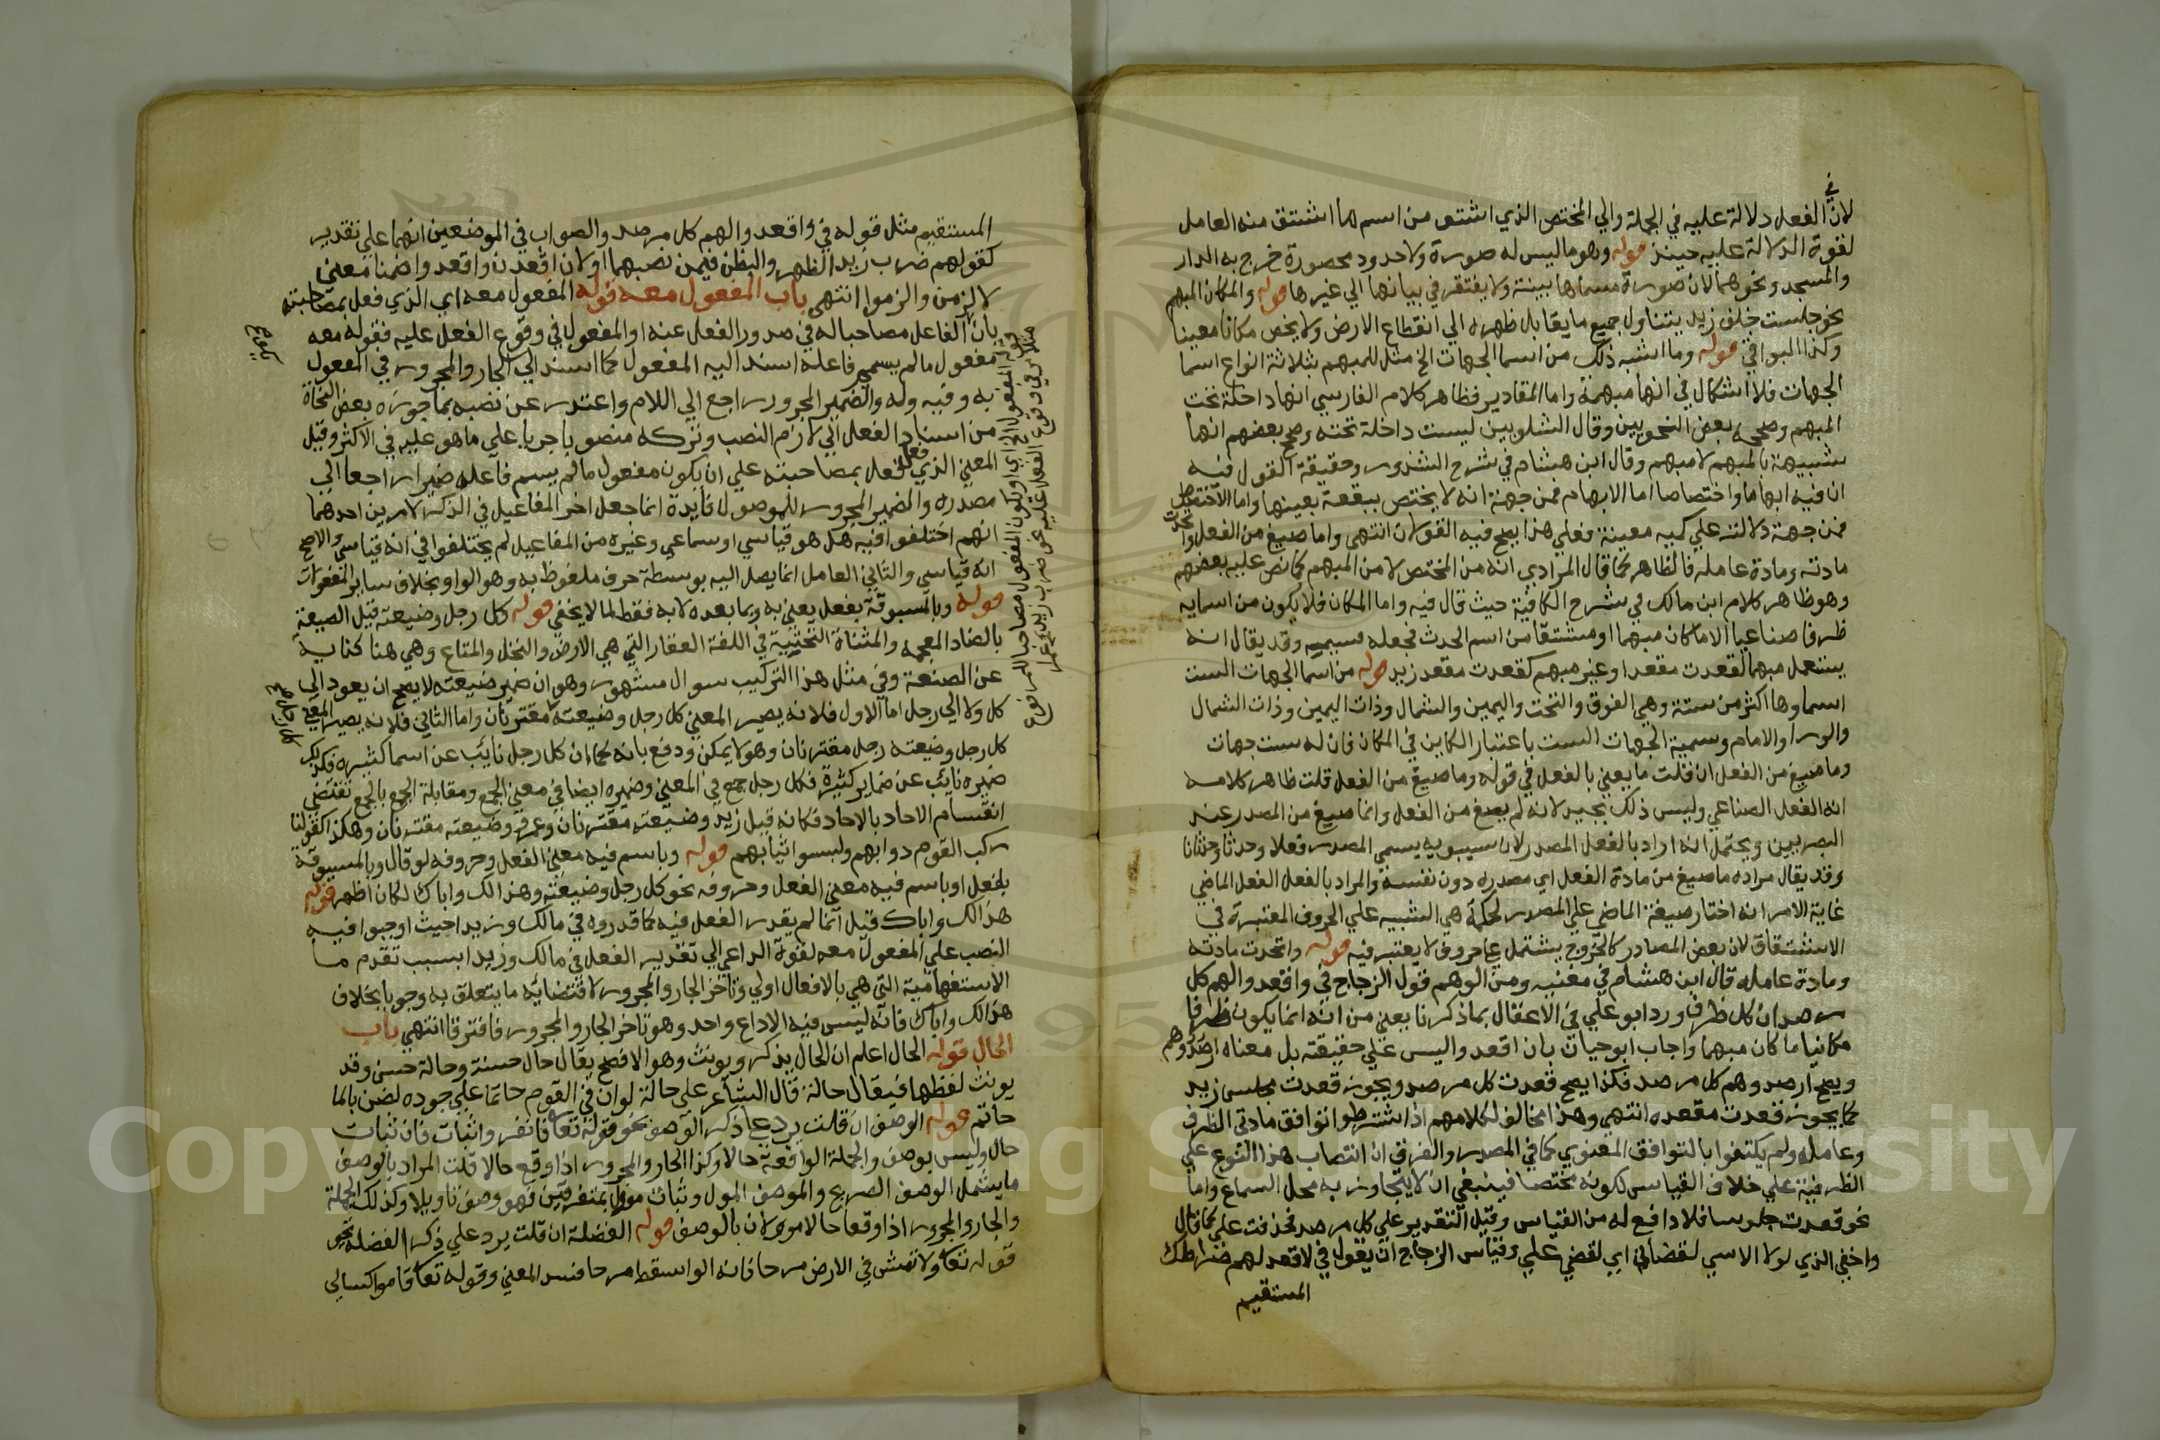 لان في الفعل دلالة عليه في الجملة والي المختص الذي اشتق من اسم ما اشتق منه العامل
لقوة الدلالة عليه حينئذ قوله وهو ما ليس له صورة ولا حدود محصورة خرج به الدار
والمسجد ونحوهما لان صورة مسماها بينة ولا يفتقر في بيانها الي غيرها قوله والمكان المبهم
نحو جلست خلف زيد يتناول جميع ما يقابل ظهره الي انقطاع الارض ولا يخص مكانا معينا
وكذا البواقي قوله وما اشبه ذلك من اسما الجهات الخ مثل للمبهم بثلاثة انواع اسما
الجهات فلا اشكال في انها مبهمة واما المقادير فظاهر كلام الفارسي انها داخلة تحت
المبهم وصححه بعض النحويين وقال الشلوبين ليست داخلة تحته وصحح بعضهم انها
شبيهة بالمبهم لا مبهم وقال ابن هشام في شرح الشذور وحقيقة القول فيه
ان فيه ابهاما واختصاصا اما الابهام فمن جهة انه لا يختص ببقعة بعينها واما الاختصاص
فمن جهة دلالته علي كمية معينة فعلي هذا يصح فيه القولان انتهى واما صيغ من الفعل واتحدت
مادته ومادة عامله فالظاهر كما قال المرادي انه من المختص لا من المبهم كما نص عليه بعضهم
وهو ظاهر كلام ابن مالك في شرح الكافية حيث قال فيه واما المكان فلا يكون من اسمايه
ظرفا صناعيا الا ما كان مبهما او مشتقا من اسم الحدث فجعله قسيمه وقد يقال انه
يستعمل مبهما لقعدت مقعدا وغير مبهم كقعدت مقعد زيد قوله من اسما الجهات الست
اسماوها اكثر من ستة وهي الفوق والتحت واليمين والشمال وذات اليمين وذات الشمال
والورا والامام وسمية الجهات الست باعتبار الكاين في المكان فان له ست جهات
وما صيغ من الفعل ان قلت ما يعني بالفعل في قوله وما صيغ من الفعل قلت ظاهر كلامه
انه الفعل الصناعي وليس ذلك بجيد لانه لم يصغ من الفعل وانما صيغ من المصدر عند
البصريين ويحتمل انه اراد بالفعل المصدر لان سيبويه يسمي المصدر فعلا وحدثا وحدثانا
وقد يقال مراده ما صيغ من مادة الفعل اي مصدره دون نفسه والمراد بالفعل الفعل الماضي
غاية الامر انه اختار صيغة الماضي علي المصدر لحكمة هي التنبيه علي الحروف المعتبرة في
الاشتقاق لان بعض المصادر كالخروج يشتمل علي حروف لا يعتبر فيه قوله واتحدت مادته
ومادة عامله قال ابن هشام في مغنيه ومن الوهم قول الزجاج في واقعدوا لهم كل
مرصد ان كل ظرف ورد ابو علي في الاغفال بما ذكرنا يعني من انه انما يكون ظرفا
مكانيا ما كان مبهما واجاب ابو حيان بان اقعدوا ليس علي حقيقته بل معناه ارصدوهم
ويصح ارصدوهم كل مرصد فكذا يصح قعدت كل مرصد ويجوز قعدت مجلس زيد
كما يجوز قعدت مقعده انتهي وهذا مخالف لكلامهم اذ اشترطوا توافق مادتي الظرف
وعامله ولم يكتفوا بالتوافق المعنوي كما في المصدر والفرق ان انتصاب هذا النوع علي
الظرفية علي خلاف القياس لكونه مختصا فينبغي ان لا يتجاوز به محل السماع واما
نحو قعدت جلوسا فلا دافع له من القياس وقيل التقدير علي كل مرصد فحذفت علي كما قال
واخفي الذي لولا الاسي لقضاني اي لقضي علي وقياس الزجاج ان يقول في لاقعدن لهم صراطك
المستقيم
المستقيم مثل قوله في واقعدوا لهم كل مرصد والصواب في الموضعين انهما علي تقدير
كقولهم ضرب زيد الظهر والبطن فيمن نصبهما او لان اقعدن واقعدوا ضمنا معنى
لالزمن والزموا انتهي باب المفعول معه قوله المفعول معه اي الذي فعل بمصاحبته
بان الفاعل مصاحبا له في صدور الفعل عنه او المفعول في وقوع الفعل عليه فقوله معه
مفعول ما لم يسمي فاعله اسند اليه المفعول كما اسند الي الجار والمجرور في المفعول
به وفيه وله والضمير المجرور راجع الي اللام واعتذر عن نصبه بما جوزه بعض النحاة
من اسناد الفعل الي لازم النصب وتركه منصوبا جريا علي ما هو عليه في الاكثر وقيل
المعني الذي فعل فعل بمصاحبته علي ان يكون مفعول ما لم يسم فاعله ضميرا راجعا الي
مصدره والضمير المجرور للموصول فايدة انما جعل اخر المفاعيل في الذكر لامرين احدهما
انهم اختلفوا فيه هل هو قياسي او سماعي وغيره من المفاعيل لم يختلفوا في انه قياسي والاصح
انه قياسي والثاني العامل انما يصل اليه بوسطة حرف ملفوظ به وهو الواو بخلاف ساير المفعولات
قوله وبالمسبوقة بفعل يعني به وبما بعده لا به فقط لما لا يخفي قوله كل رجل وضيعته قيل الضيعة
بالضاد المعجمة والمثناة التحتية في اللغة العقار التي هي الارض والنخل والمتاع وهي هنا كناية
عن الصنعة وفي مثل هذا التركيب سوال مشهور وهو ان ضمير ضيعته لا يصح ان يعود الي
كل ولا الي رجل اما الاول فلانه يصير المعني كل رجل وضيعته مقترنان واما الثاني فلانه يصير المعني
كل رجل وضيعته رجل مقترنان وهو لا يمكن ودفع بانه كما ان كل رجل نايب عن اسما كثيره فكذلك
ضميره نايب عن ضماير كثيرة فكل رجل جمع في المعني وضميره ايضا في معني الجمع ومقابلة الجمع بالجمع تقتضي
انقسام الاحاد بالاحاد فكانه قيل زيد وضيعته مقترنان وعمرو وضيعته مقترنان وهكذا كقولنا
ركب القوم دوابهم ولبسوا ثيابهم قوله وباسم فيه معني الفعل وحروفه لو قال وبالمسبوقة
بفعل او باسم فيه معني الفعل وحروفه نحو كل رجل وضيعته وهذا لك واباك لكان اظهر قوله
هذا لك واباك قيل انما لم يقدر الفعل فيه كما قدروه في مالك وزيدا حيث اوجبوا فيه
النصب علي المفعول معه لقوة الداعي الي تقدير الفعل في مالك وزيدا بسبب تقدم ما
الاستفهامية التي هي بالافعال اولي وتاخر الجار والمجرور لاقتضائه ما يتعلق به وجوبا بخلاف
هذا لك واباك فانه ليس فيه الا داع واحد وهو تاخر الجار والمجرور فافترقا انتهي باب
الحال قوله الحال اعلم ان الحال يذكر ويونث وهو الافصح يقال حال حسنة وحالة حسن وقد
يونث لفظها فيقال حالة قال الشاعر علي حالة لو ان في القوم حاتما علي جوده لضن بالما
حاتم قوله الوصف ان قلت يرد علي ذكر الوصف نحو قوله تعالي فانفروا ثبات فان ثبات
حال وليس بوصف والجملة الواقعة حالا وكذا الجار والمجرور اذا وقع حالا قلت المراد بالوصف
ما يشمل الوصف الصريح والموصف المول وثبات مول بمتفرقين فهو وصف تاويلا وكذلك الجملة
والجار والمجرور اذا وقعا حالا مولان بالوصف قوله الفضلة ان قلت يرد علي ذكر الفضلة نحو
قوله تعالي ولا تمش في الارض مرحا فانه لو اسقط مرحا فسد المعني وقوله تعالي قاموا كسالي